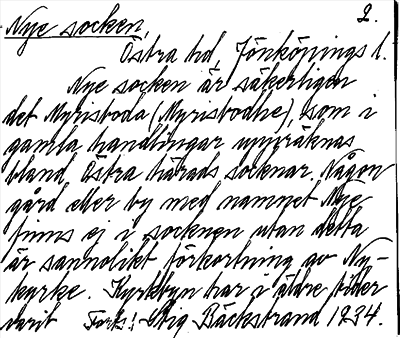 Nye socken, 2.
Östra hd, Jönköpings l.
Nye socken är säkerligen
det Myrisboda (Myrisbodhe), som i
gamla handlingar uppräknas
bland Östra härads socknar. Någon
gård eller by med namnet Nye
finns ej i socknen utan detta
är sannolikt förkortning av Ny-
kyrke. Kyrkbyn har i äldre tider
varit Forts! Stig Bäckstrand 1934.